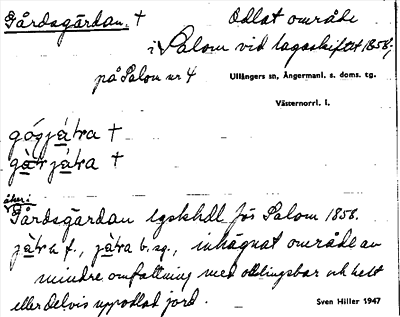 Gårdsgärdan. † Odlat område
i Salom vid lagaskiftet 1858;
på Salom nr 4
Ullångers sn, Ångermanl. s. doms. tg.
Västernorrl. l.
†
gàrjàtra †
åker:
Gårdsgärdan lgskhdl för Salom 1858.
jàtra f., jàtra b. sg., inhägnat område av
mindre omfattning med odlingsbar och helt
eller delvis uppodlad jord.
Sven Hiller 1947